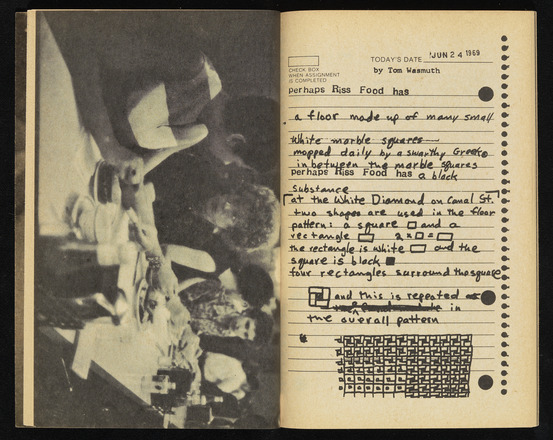 TODAY'S DATE JUN 24 1969
CHECK BOX
WHEN ASSIGNMENT
IS COMPLETED
by Tom Wasmuth
perhaps Riss Food has
a floor made up of many small
white marble squares
mopped daily by a swarthy Greek
in between the marble squares
perhaps Riss Food has a black
substance
at the White Diamond on Canal St.
two shapes are used in the floor
pattern: a square □ and a
rectangle ▭ 2x□=▭
the rectangle is white ▭ and the
square is black ■
four rectangles surround the square
and this is repeated
in
the overall pattern